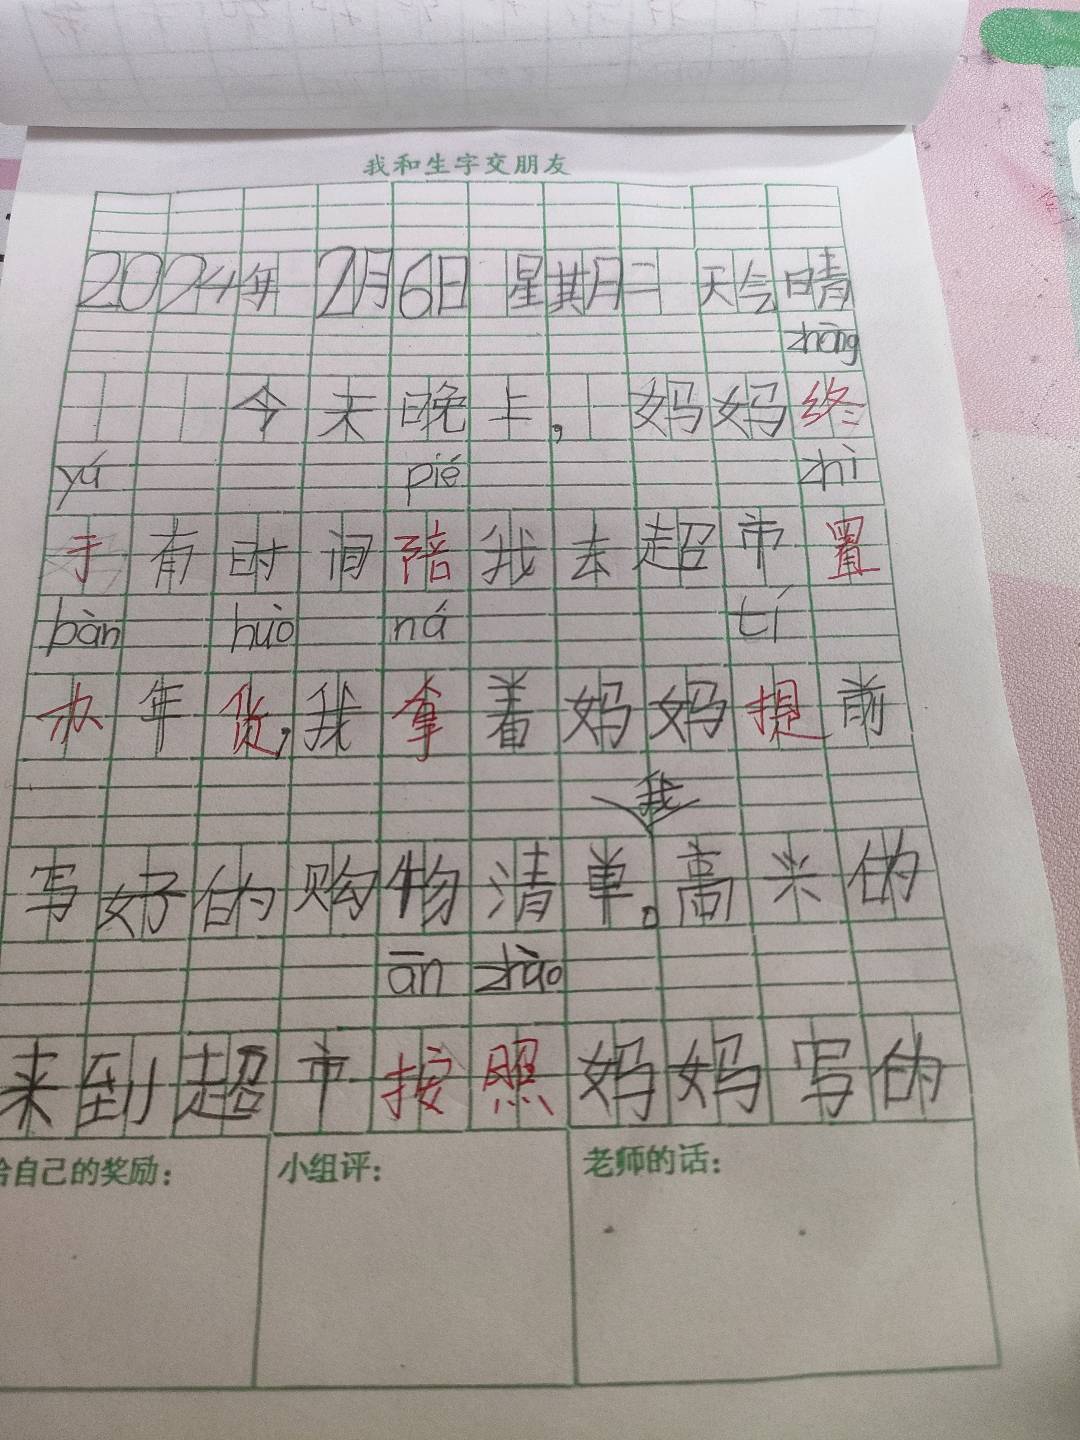 我和生字交朋友
2024年 2月6日 星期二 天气晴
zhōng
今天晚上，妈妈终
yú pié zhì
于有时间陪我去超市置
bàn huò ná tí
办年货，我拿着妈妈提前
我
写好的购物清单。高兴的
àn zhào
来到超市按照妈妈写的
给自己的奖励： 小组评： 老师的话：